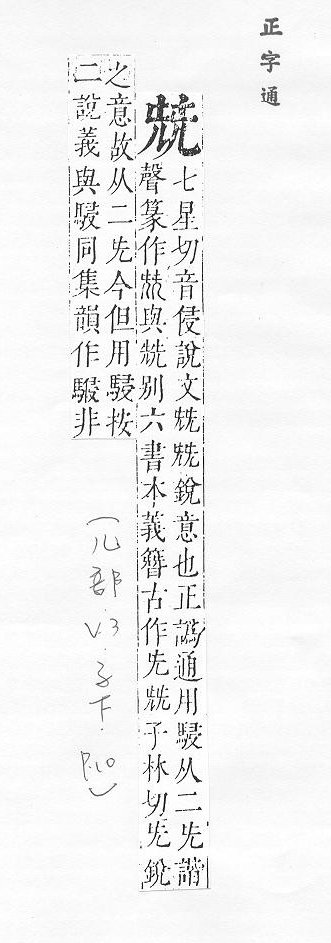 正字通
兓
七星切音侵說文兓兓銳意也正譌通用駸从二兂諧
聲篆作兓與兟別六書本義簪古作兂兓子林切兂銳
之意故从二兂今但用駸按
二說義與駸同集韻作非
(儿部.V3.子下.P.10)